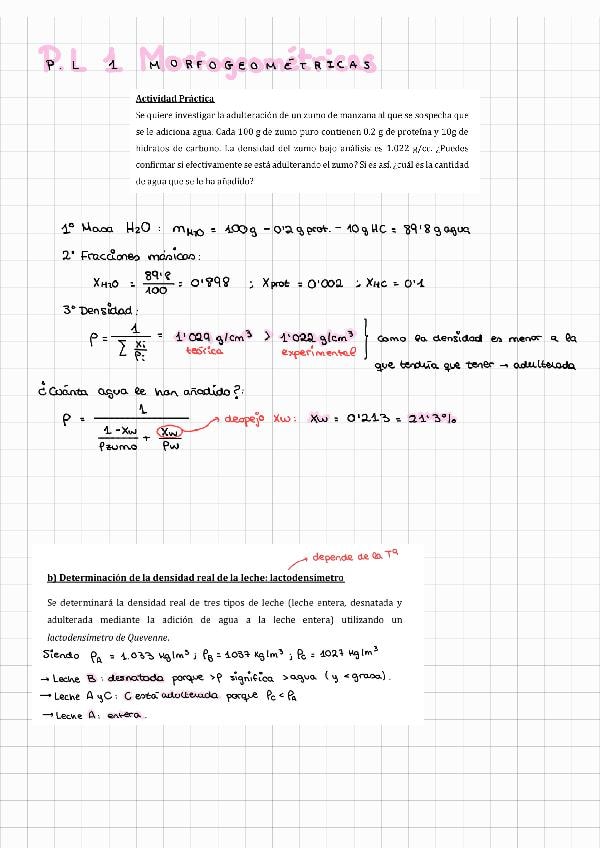 P.L 1 MORFOGEOMÉTRICAS
Actividad Práctica
Se quiere investigar la adulteración de un zumo de manzana al que se sospecha que
se le adiciona agua. Cada 100 g de zumo puro contienen 0.2 g de proteína y 10g de
hidratos de carbono. La densidad del zumo bajo análisis es 1.022 g/cc. ¿Puedes
confirmar si efectivamente se está adulterando el zumo? Si es así, ¿cuál es la cantidad
de agua que se le ha añadido?
1º Masa H2O : mH2O = 100g - 0'2g prot. - 10g HC = 89'8g agua
2º Fracciones másicas:
XH2O = 89'8/100 = 0'898 ; Xprot = 0'002 ; XHC = 0'1
3º Densidad:
ρ = 1/(Σ Xi/ρi) = 1'029 g/cm³ > 1'022 g/cm³ } como la densidad es menor a la
teórica experimental que tendría que tener → adulterada
¿Cuánta agua le han añadido?:
ρ = 1/((1-Xw)/ρzumo + Xw/ρw) → despejo Xw: Xw = 0'213 = 21'3%
→ depende de la Tª
b) Determinación de la densidad real de la leche: lactodensímetro
Se determinará la densidad real de tres tipos de leche (leche entera, desnatada y
adulterada mediante la adición de agua a la leche entera) utilizando un
lactodensímetro de Quevenne.
Siendo ρA = 1.033 kg/m³ ; ρB = 1037 kg/m³ ; ρC = 1027 kg/m³
→ Leche B : desnatada porque >ρ significa >agua (y <grasa).
→ Leche A y C : C está adulterada porque ρC < ρA
→ Leche A : entera.